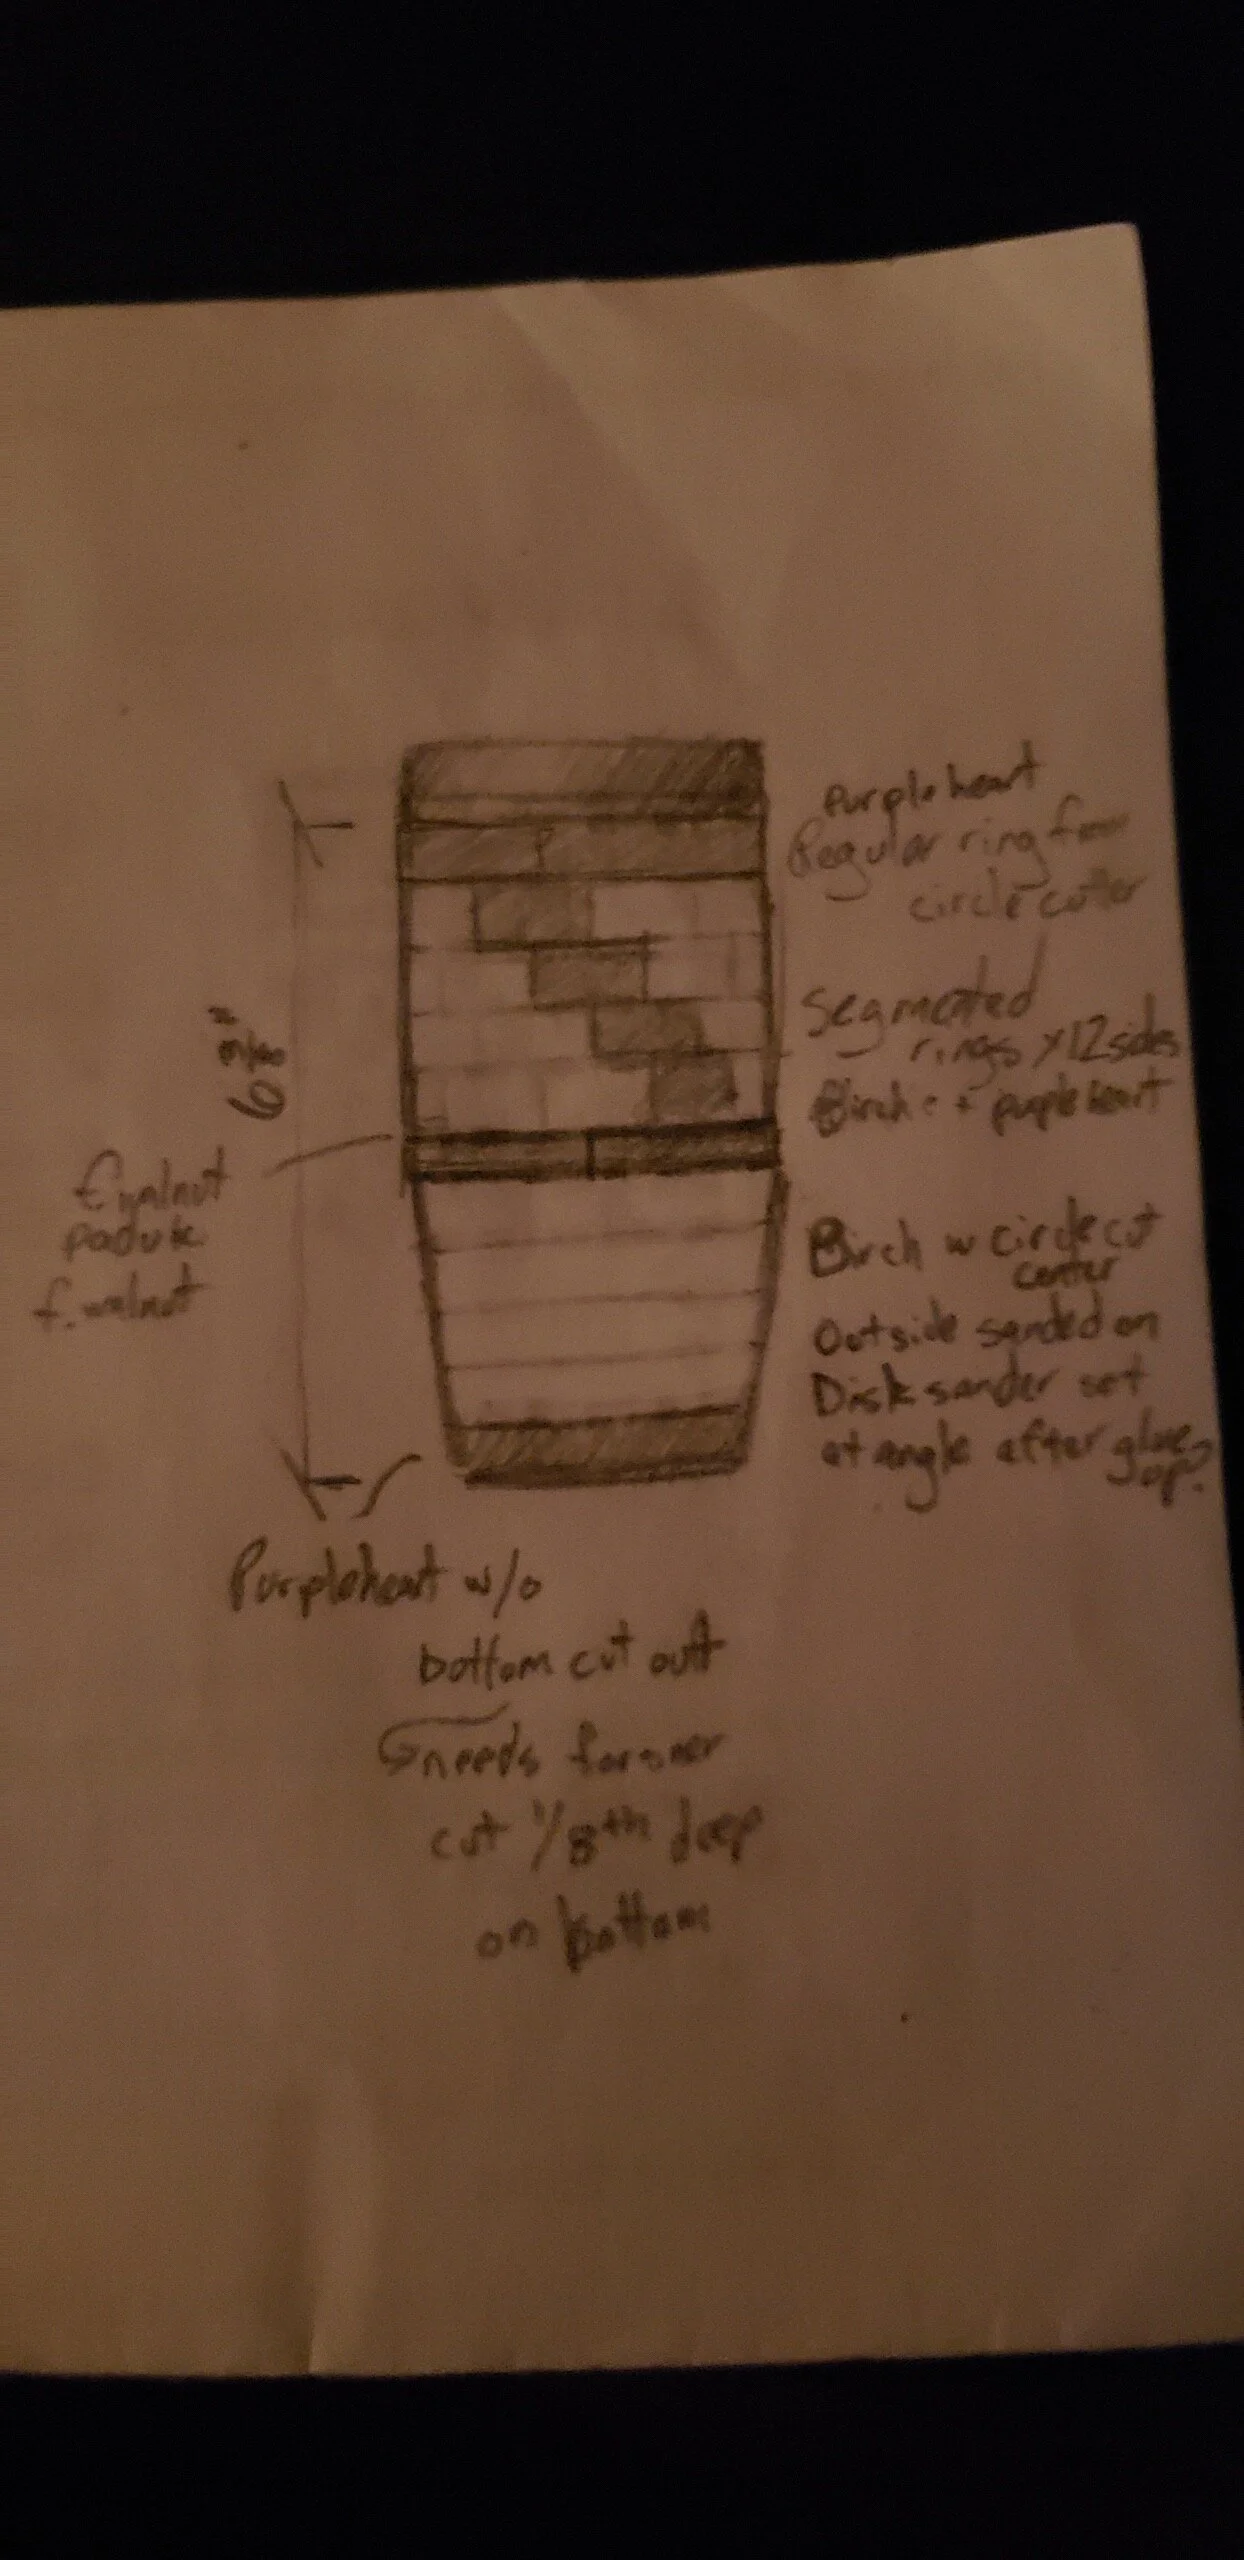 Purpleheart
Regular ring from
circle cutter
6 3/8"
Segmented
rings x12 sides
Birch + purpleheart
walnut
paduk
f. walnut
Birch w circle cut
center
Outside sanded on
Disk sander set
at angle after glue
up.
Purpleheart w/o
bottom cut out
needs forsner
cut 1/8th deep
on bottom